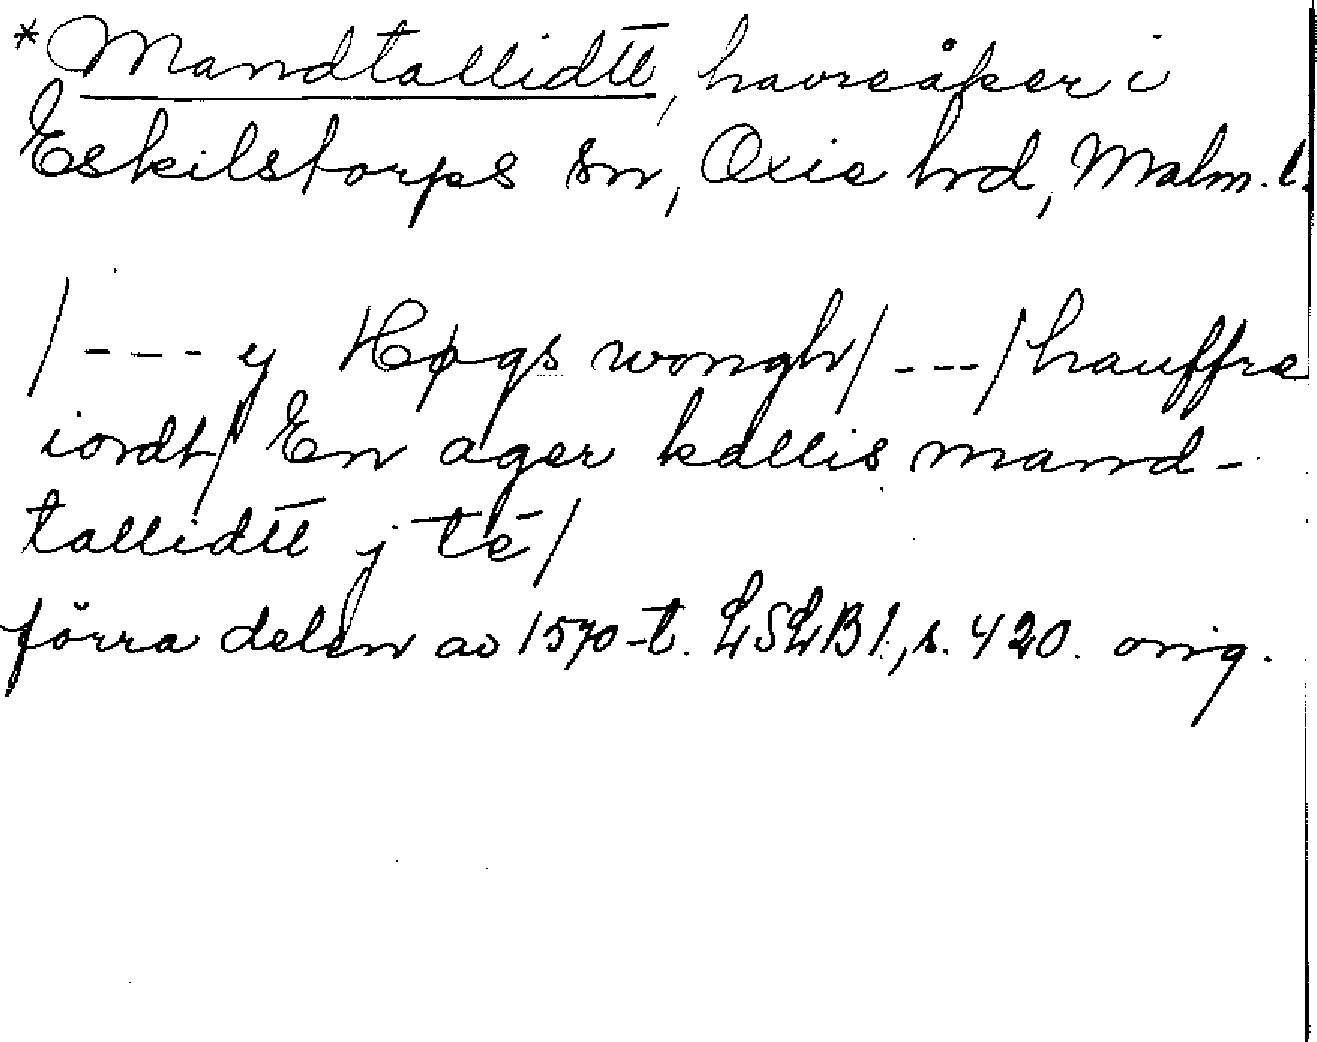 *Mandtallidtt̄, havreåker i
Eskilstorps sn, Oxie hrd, Malm. l.
/--- y Høgs wongh/ ---/hauffre
iordt/ En ager kallis mand-
tallidtt̄ j tē/
förra delen av 1570-t. LSLB1, s. 420. orig.